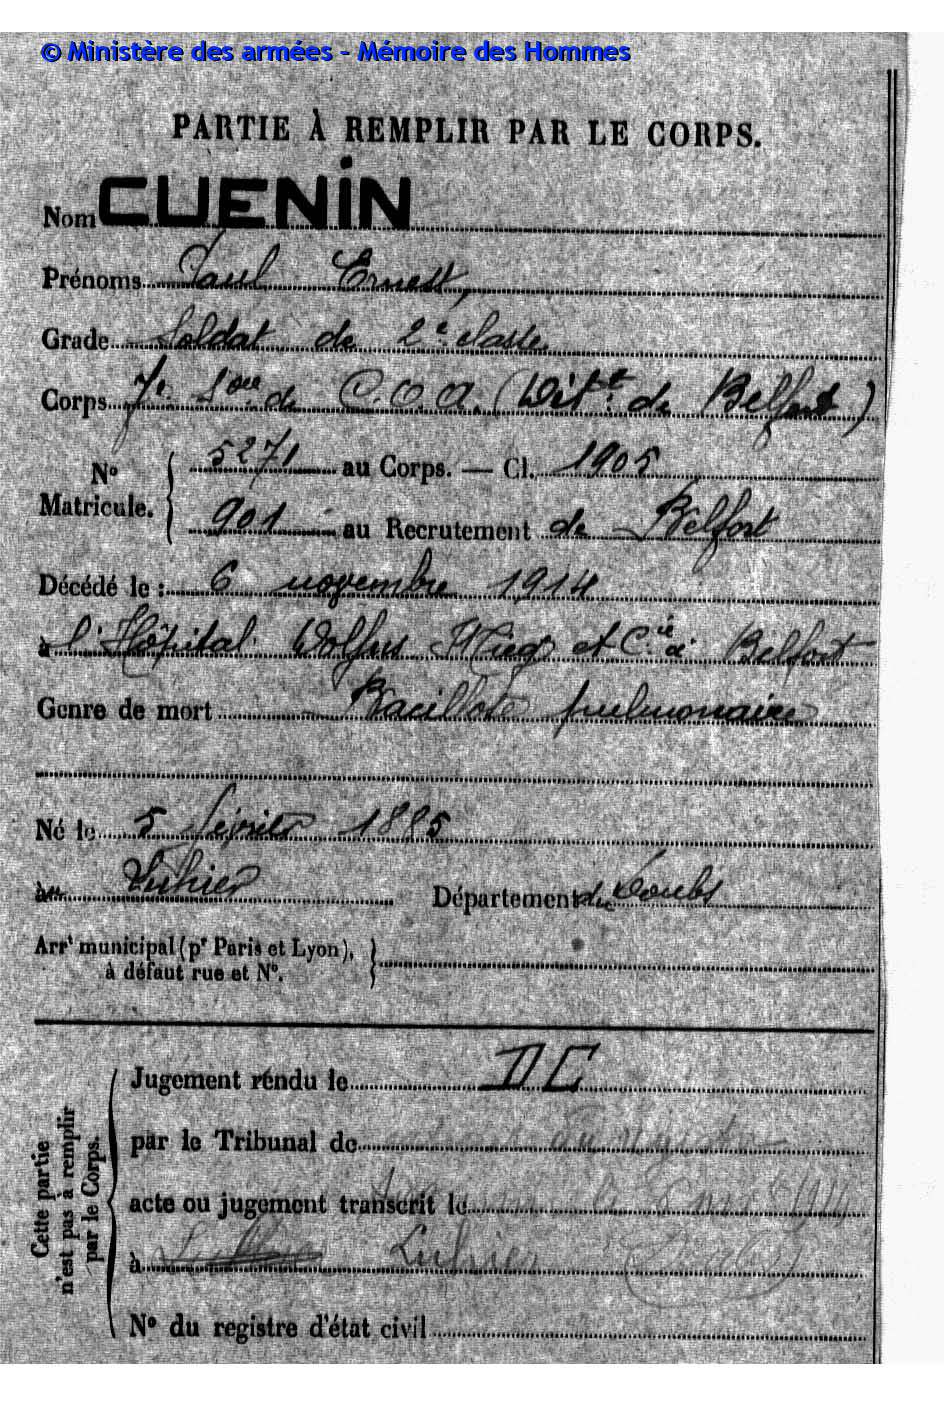 © Ministère des armées - Mémoire des Hommes
PARTIE À REMPLIR PAR LE CORPS.
Nom CUENIN
Prénoms Paul Ernest,
Grade Soldat de 2e classe
Corps 7e Son de C.O.A. (Dét.t de Belfort)
No Matricule. 5271 au Corps. — Cl. 1905
901 au Recrutement de Belfort
Décédé le : 6 novembre 1914
à l'Hôpital Dolfus Mieg et Cie à Belfort
Genre de mort Bacillose pulmonaire
Né le 5 février 1885
à Luhier Département du Doubs
Arrt municipal (pr Paris et Lyon),
à défaut rue et No.
Cette partie
n'est pas à remplir
par le Corps.
Jugement rendu le DC
par le Tribunal de du
acte ou jugement transcrit le le 6 1914
à Luhier (Doubs)
No du registre d'état civil